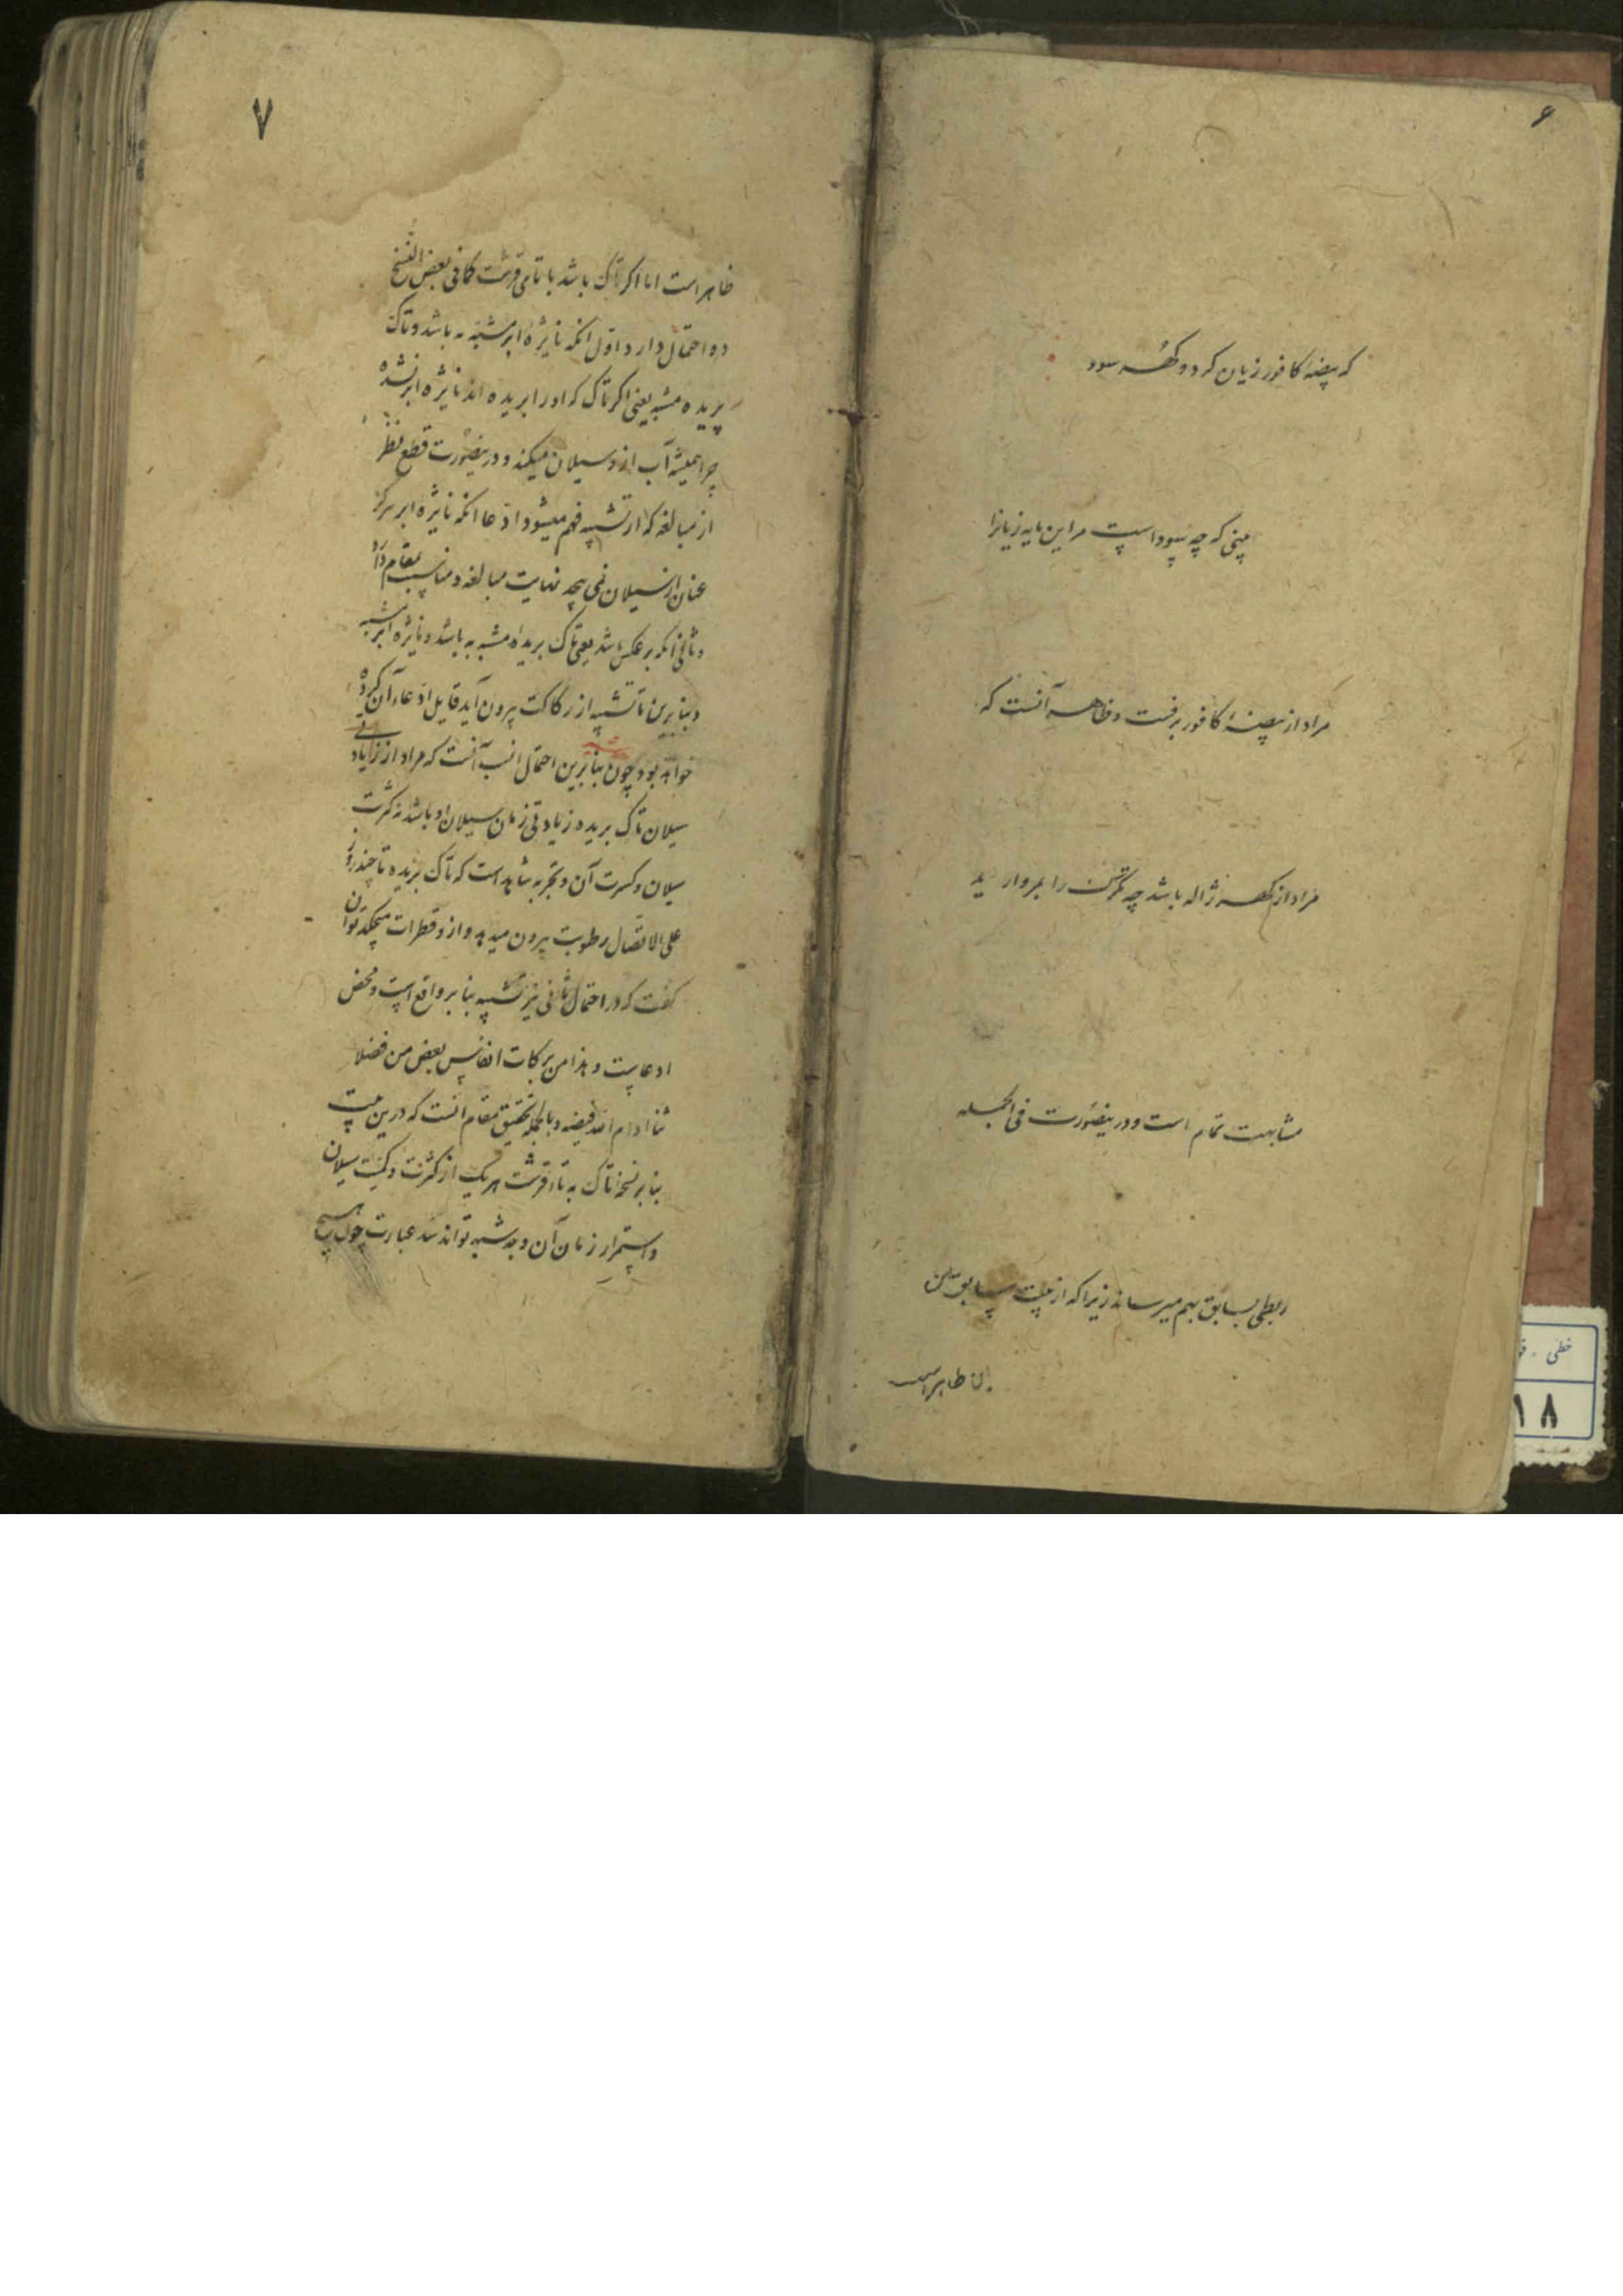 ۶
که بیضهٔ کافور زیان کرد و گهر سود
بینی که چه سود است مر این مایه زیانرا
مراد از بیضهٔ کافور برفست و ظاهر آنست که
مراد از گهر ژاله باشد چه تگرگ را بمروارید
مشابهت تمام است و درینصورت فی الجمله
ربطی بسابق بهم میرساند زیرا که از بیت سابق
ظاهر است
۷
ظاهر است اما اگر تاک باشد با تای قرشت کما فی بعض النسخ
دو احتمال دارد اول انکه نایژهٔ ابر مشبه به باشد و تاک
بریده مشبه یعنی اکر تاک که اورا بریده اند نایژه ابر نشده
چرا همیشه آب ازو سیلان میکند و درینصورت قطع نظر
از مبالغه که از تشبیه فهم میشود ادعا انکه نایژه ابر هرکز
عنان از سیلان نمی پیچد نهایت مبالغه و مناسب مقام دارد
و ثانی انکه بر عکس باشد یعنی تاک بریده مشبه به باشد و نایژه ابر مشبه
و بنابرین تا تشبیه از رکاکت بیرون آید قایل ادعاء آن کرده
خواهد بود چون بنابرین احتمال انسب آنست که مراد از زیادتی
سیلان تاک بریده زیادتی زمان سیلان او باشد نه کثرت
سیلان و کسرت آن و تجربه شاهد است که تاک بریده تا چند روز
علی الاتصال رطوبت بیرون میدهد و ازو قطرات میچکد توان
کفت که در احتمال ثانی نیز تشبیه بنابر واقع است و محض
ادعا نیست و هذا من برکات انفاس بعض من فضلا
ئنا ادام الله فیضه و بالجمله تحقیق مقام انست که درین بیت
بنابر نسخهٔ تاک به تاء قرشت هر یک از کثرت و کمیت سیلان
و استمرار زمان آن وجه شبه تواند شد عبارت چون هیچ
خطی
۱۸